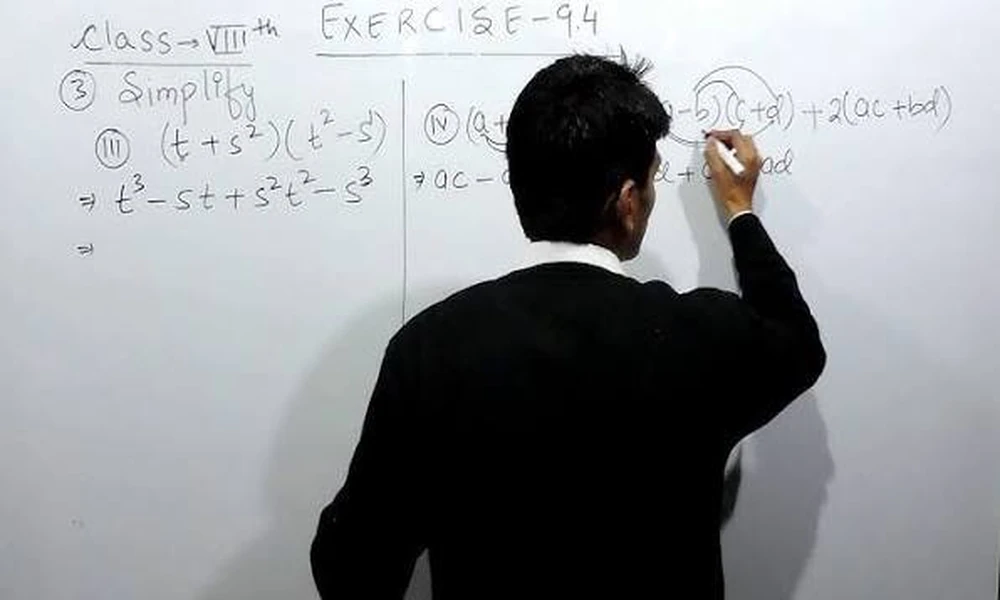 Class → VIIIth EXERCISE - 9.4
③ Simplify
(iii) (t + s²)(t² - s)
⇒ t³ - st + s²t² - s³
⇒
(iv) (a+ - b)(c+d) + 2(ac + bd)
⇒ ac - + ad